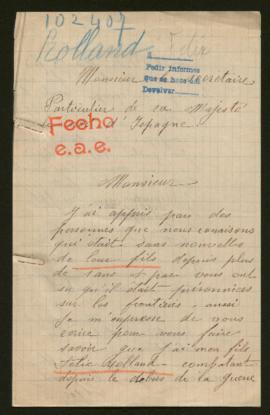 102407
Rolland Félix
Pedir informes
que se hace
Devolver
Monsieur Secretaire
Particulier de sa Majesté
d'Espagne
Fecho
e.a.e.
Monsieur
J'ai appris par des
personnes que nous conaisons
qui était sans nouvelles
de leur fils depuis plus
de ans par vous ont
su qu'il était prisonniers
sur les frontières aussi
je m'empresse de vous
ecrire pour vous faire
savoir que j'ai mon fils
Felix Rolland combatant
depuis le debus de la guerre